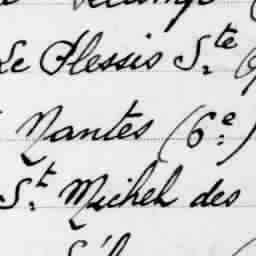 Le Plessis Ste
Nantes (6e)
St Michel des